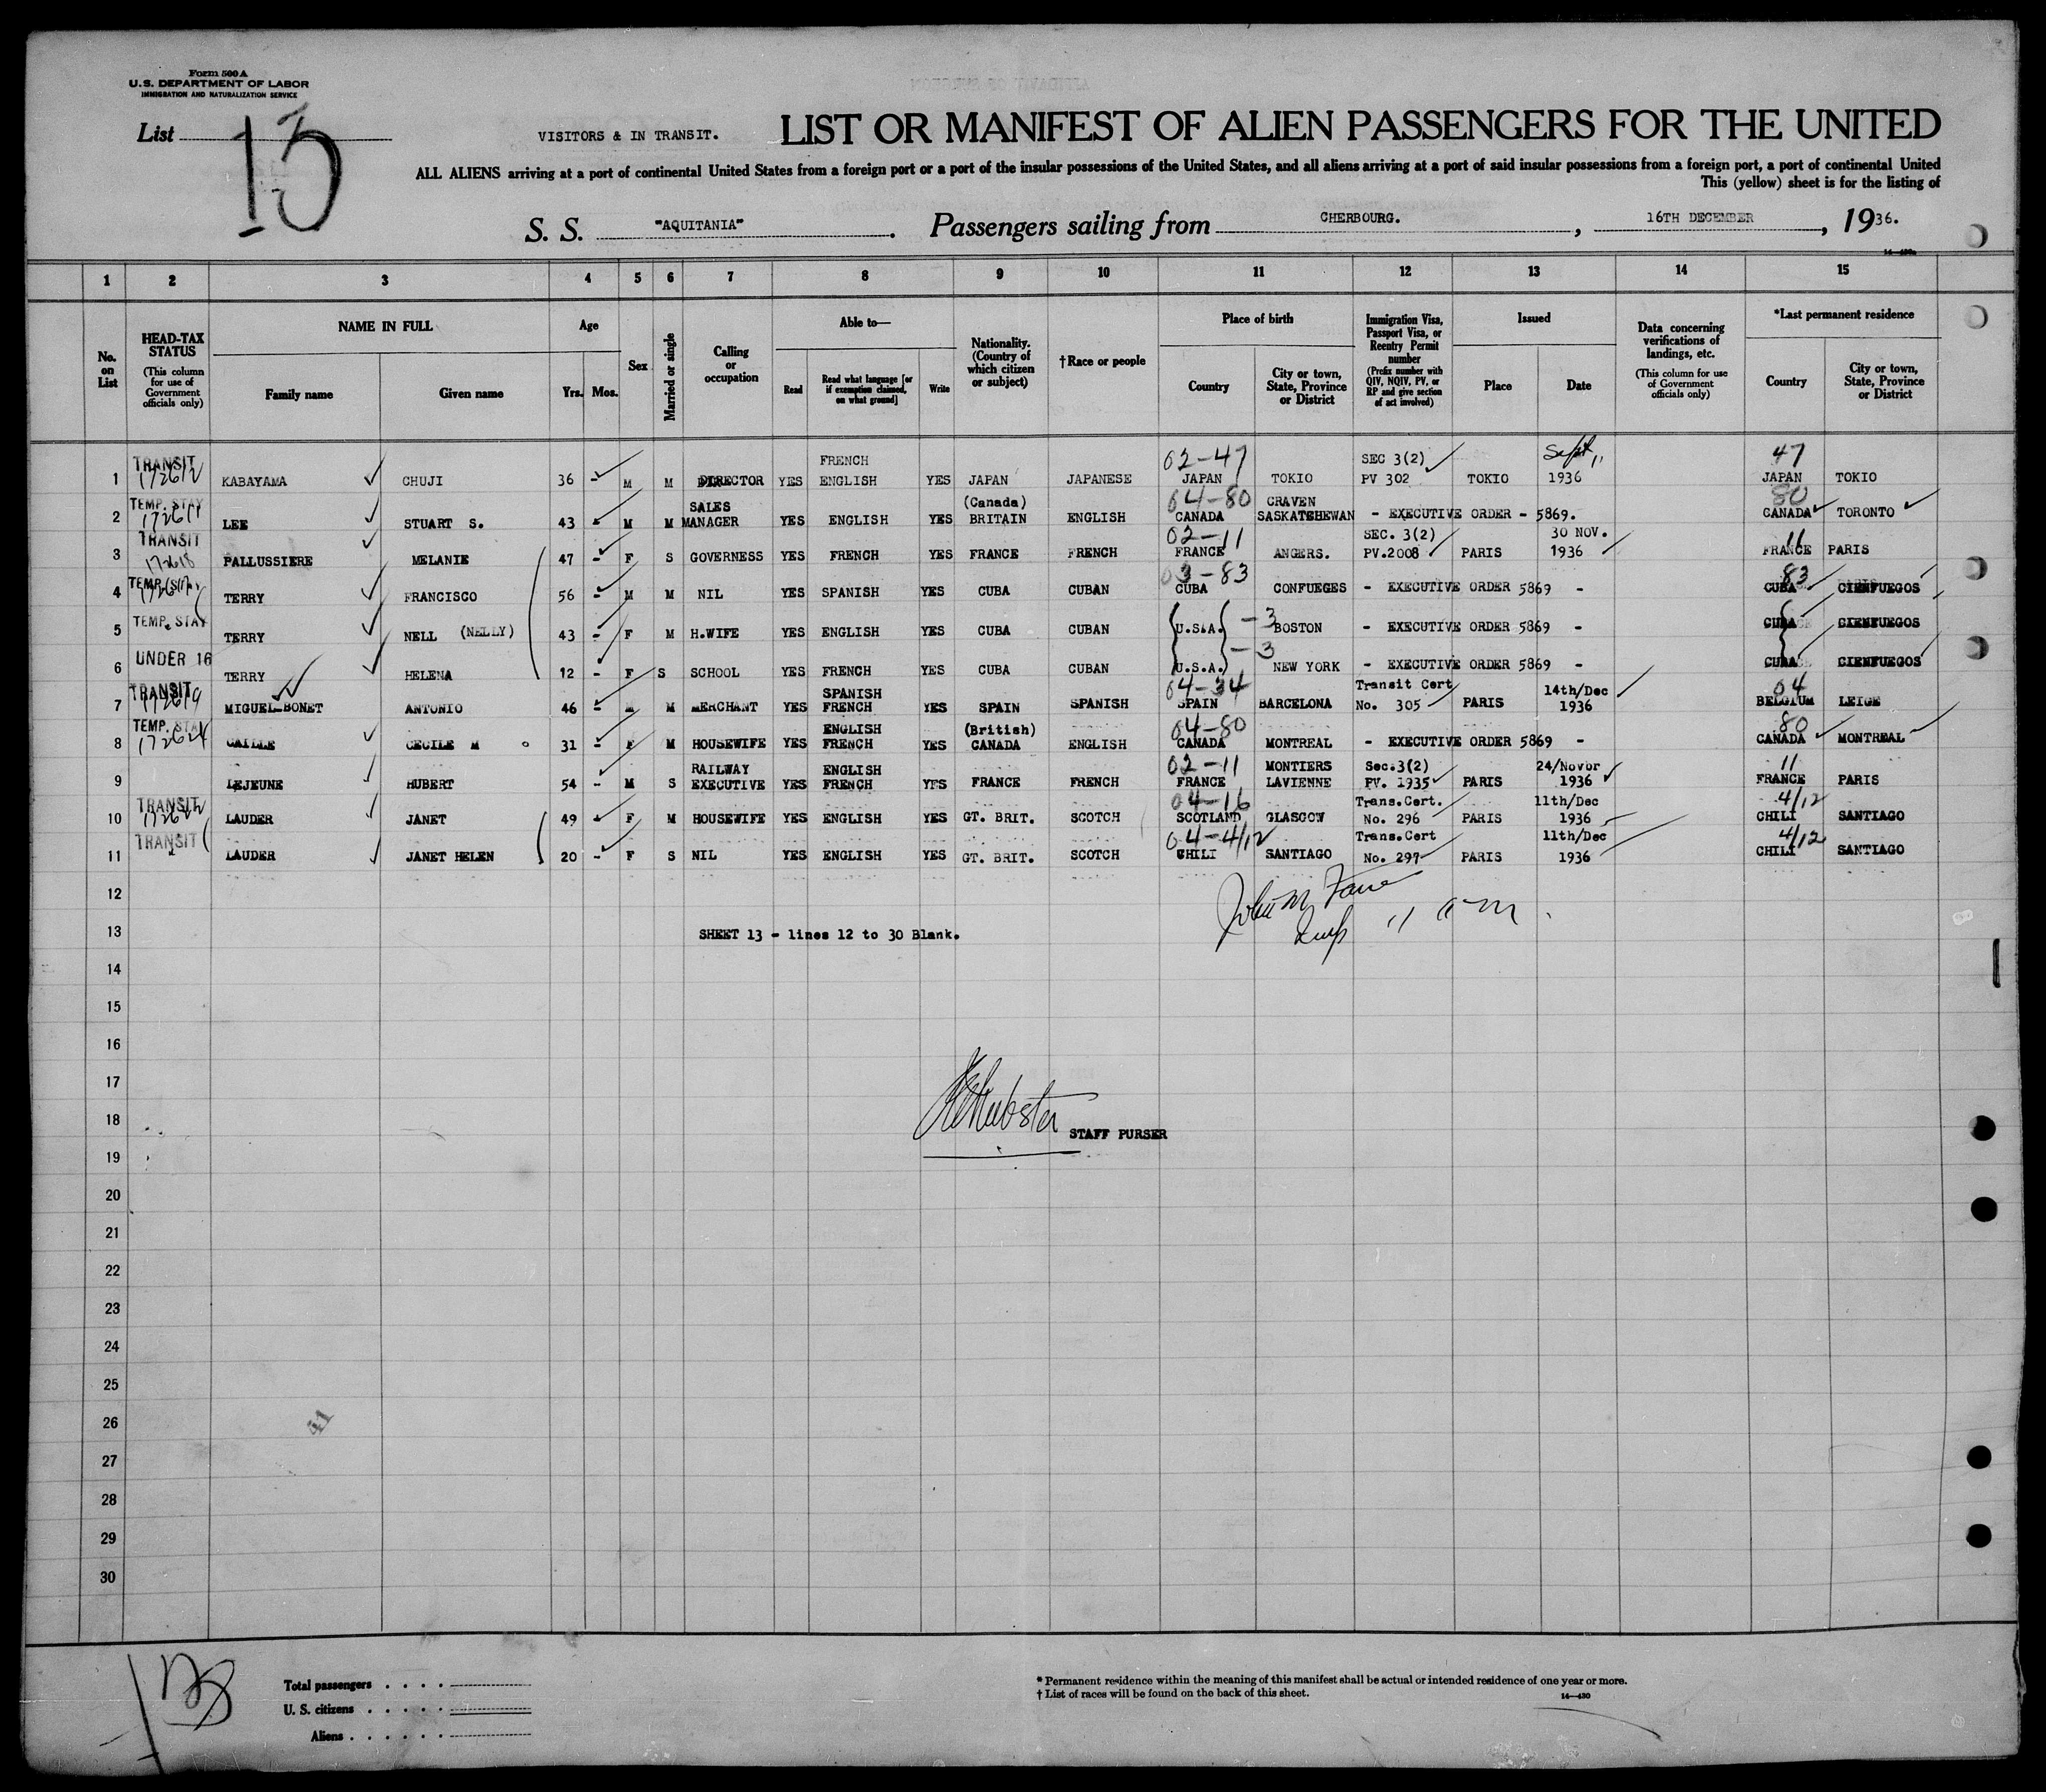 Form 500 A
U.S. DEPARTMENT OF LABOR
IMMIGRATION AND NATURALIZATION SERVICE
List 13
VISITORS & IN TRANSIT.
LIST OR MANIFEST OF ALIEN PASSENGERS FOR THE UNITED
ALL ALIENS arriving at a port of continental United States from a foreign port or a port of the insular possessions of the United States, and all aliens arriving at a port of said insular possessions from a foreign port, a port of continental United
This (yellow) sheet is for the listing of
S. S. "AQUITANIA". Passengers sailing from CHERBOURG., 16TH DECEMBER, 1936.
14—430a
1 2 3 4 5 6 7 8 9 10 11 12 13 14 15
No. on List
HEAD-TAX STATUS (This column for use of Government officials only)
NAME IN FULL Family name Given name
Age Yrs. Mos.
Sex
Married or single
Calling or occupation
Able to— Read Read what language [or if exemption claimed, on what ground] Write
Nationality. (Country of which citizen or subject)
†Race or people
Place of birth Country City or town, State, Province or District
Immigration Visa, Passport Visa, or Reentry Permit number (Prefix number with QIV, NQIV, PV, or RP and give section of act involved)
Issued Place Date
Data concerning verifications of landings, etc. (This column for use of Government officials only)
*Last permanent residence Country City or town, State, Province or District
TRANSIT FRENCH 02-47 SEC 3(2) Sept, 11 47
1 172612 KABAYAMA CHUJI 36 - M M DIRECTOR YES ENGLISH YES JAPAN JAPANESE JAPAN TOKIO PV 302 TOKIO 1936 JAPAN TOKIO
TEMP. STAY SALES (Canada) 04-80 CRAVEN 80
2 172611 LEE STUART S. 43 - M M MANAGER YES ENGLISH YES BRITAIN ENGLISH CANADA SASKATSHEWAN - EXECUTIVE ORDER - 5869. CANADA TORONTO
TRANSIT 02-11 SEC. 3(2) 30 NOV. 11
3 172618 PALLUSSIERE MELANIE 47 - F S GOVERNESS YES FRENCH YES FRANCE FRENCH FRANCE ANGERS. PV.2008 PARIS 1936 FRANCE PARIS
TEMP. 03-83 83
4 TERRY FRANCISCO 56 - M M NIL YES SPANISH YES CUBA CUBAN CUBA CONFUEGES - EXECUTIVE ORDER 5869 - CUBA CIENFUEGOS
TEMP. STAY
5 TERRY NELL (NELLY) 43 - F M H.WIFE YES ENGLISH YES CUBA CUBAN U.S.A. - 3 BOSTON - EXECUTIVE ORDER 5869 - CUBA CIENFUEGOS
UNDER 16
6 TERRY HELENA 12 - F S SCHOOL YES FRENCH YES CUBA CUBAN U.S.A. - 3 NEW YORK - EXECUTIVE ORDER 5869 - CUBA CIENFUEGOS
TRANSIT SPANISH 04-34 Transit Cert 14th/Dec 04
7 172619 MIGUEL-BONET ANTONIO 46 - M M MERCHANT YES FRENCH YES SPAIN SPANISH SPAIN BARCELONA No. 305 PARIS 1936 BELGIUM LEIGE
TEMP. STAY ENGLISH (British) 04-80 80
8 172624 CAILLE CECILE M 31 - F M HOUSEWIFE YES FRENCH YES CANADA ENGLISH CANADA MONTREAL - EXECUTIVE ORDER 5869 - CANADA MONTREAL
RAILWAY ENGLISH 02-11 MONTIERS Sec.3(2) 24/Novbr 11
9 LEJEUNE HUBERT 54 - M S EXECUTIVE YES FRENCH YES FRANCE FRENCH FRANCE LAVIENNE PV. 1935 PARIS 1936 FRANCE PARIS
TRANSIT 04-16 Trans.Cert. 11th/Dec 4/12
10 LAUDER JANET 49 - F M HOUSEWIFE YES ENGLISH YES GT. BRIT. SCOTCH SCOTLAND GLASGOW No. 296 PARIS 1936 CHILI SANTIAGO
TRANSIT 04-4/12 Trans.Cert 11th/Dec 4/12
11 LAUDER JANET HELEN 20 - F S NIL YES ENGLISH YES GT. BRIT. SCOTCH CHILI SANTIAGO No. 297 PARIS 1936 CHILI SANTIAGO
12
13 SHEET 13 - lines 12 to 30 Blank.
14
15
16
17
18 STAFF PURSER
19
20
21
22
23
24
25
26
41
27
28
29
30
Total passengers
U. S. citizens
Aliens
* Permanent residence within the meaning of this manifest shall be actual or intended residence of one year or more.
† List of races will be found on the back of this sheet.
14—430